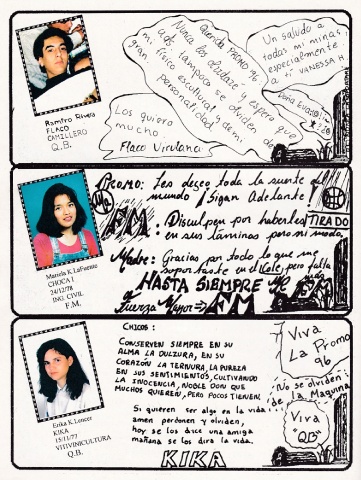 Querida PROMO 96
Nunca los olvidaré y espero que
uds. tampoco se olviden de
mi físico escultural y de mi
gran personalidad
Un saludo a
todas mis minas,
especialmente
a ti VANESSA H.
Los quiero
mucho.
Flaco Virulana
Ramiro Rivera
FLACO
CAMILLERO
Q.B.
PROMO: Les deseo toda la suerte del
mundo ¡Sigan Adelante!
FM.: Disculpen por haberles TIRADO
en sus láminas pero ni modo.
Madre: Gracias por todo lo que me
soportaste en el Kole, pero falta
HASTA SIEMPRE
Fuerza Mayor → F.M.
Mariela K. LaFuente
CHOCA I
24/12/78
ING. CIVIL
F.M.
CHICOS:
CONSERVEN SIEMPRE EN SU
ALMA LA DULZURA, EN SU
CORAZÓN LA TERNURA, LA PUREZA
EN SUS SENTIMIENTOS, CULTIVANDO
LA INOCENCIA, NOBLE DON QUE
MUCHOS QUIEREN, PERO POCOS TIENEN.
Si quieren ser algo en la vida...
amen perdonen y olviden,
hoy se los dice una amiga
mañana se los dirá la vida.
KIKA
Viva
La Promo
96
¡No se olviden
de la Maquina
Viva
"QB"
Erika K. Lencer
KIKA
15/11/77
VITIVINICULTURA
Q.B.